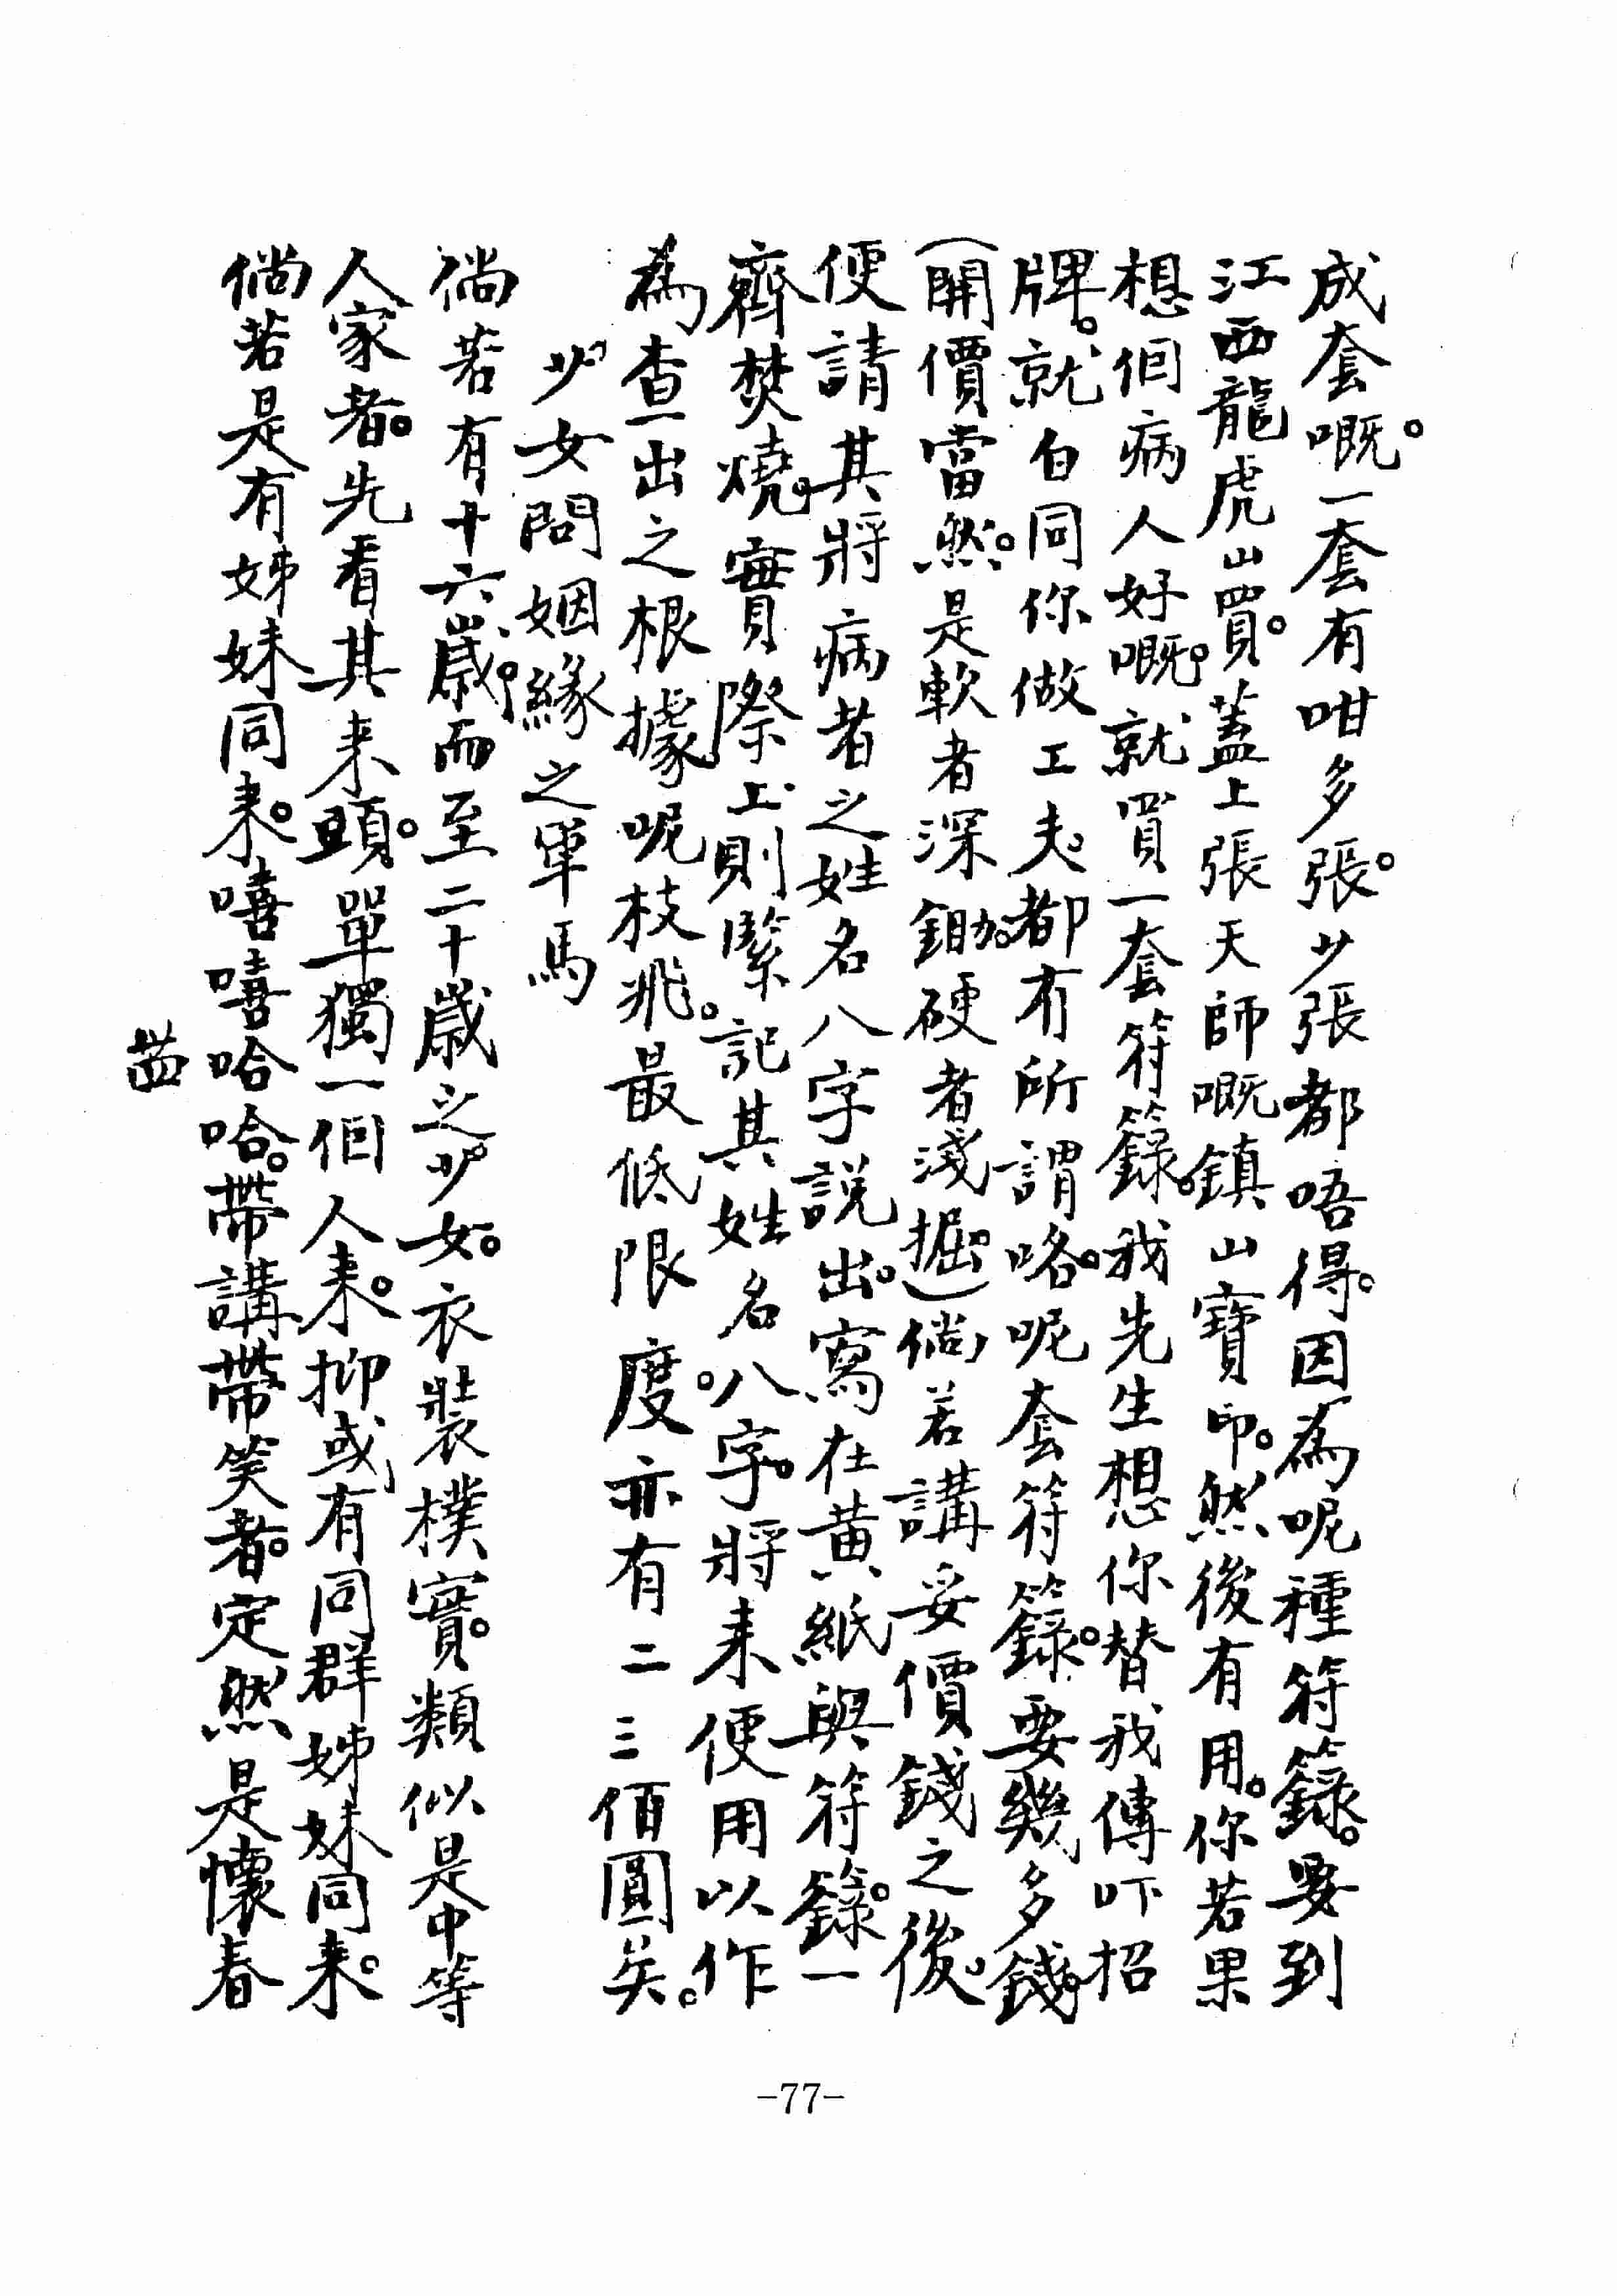 成套嘅。一套有咁多張。少張都唔得。因為呢種符籙。要到
江西龍虎山買。蓋上張天師嘅鎮山寶印。然後有用。你若果
想佪病人好嘅。就買一套符籙。我先生想你替我傳吓招
牌。就白同你做工夫。都有所謂咯。呢套符籙。要幾多錢
(開價當然。是軟者深鋤。硬者淺掘。)倘若講妥價錢之後。
便請其將病者之姓名八字說出。寫在黃紙與符籙。一
齊焚燒。實際上則緊記其姓名。八字。將来便用以作
為查出之根據呢枝飛。最低限度亦有二三佰圓矣。
少女問姻緣之單馬
倘若有十六歲。而至二十歲之少女。衣裝樸實。類似是中等
人家者。先看其来頭。單獨一佪人来。抑或有同群姊妹同来。
倘若是有姊妹同来。嘻嘻哈哈。帶講帶笑者。定然是懷春
-77-